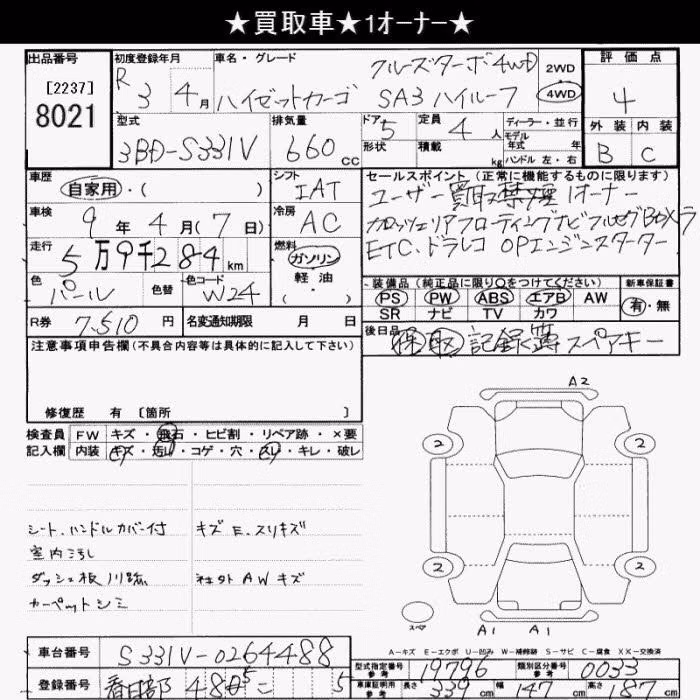 ★買取車★1オーナー★
出品番号
[2237]
8021
初度登録年月
R3年4月
車名・グレード
ハイゼットカーゴ
クルーズターボ4WD
SA3 ハイルーフ
2WD
4WD
評価点
4
外装 内装
B C
型式
3BD-S331V
排気量
660cc
ドア 5
形状
定員 4人
積載 kg
ディーラー・並行
モデル
年式 年
ハンドル 左・右
車歴
自家用・( )
シフト
IAT
車検
9年4月(7日)
冷房
AC
走行
5万9千284km
燃料
ガソリン
軽油
( )
色
パール
色替
色コード
W24
R券 7,510円
名変通知期限 月 日
セールスポイント(正常に機能するものに限ります)
ユーザー買取 禁煙 1オーナー
カロッツェリアフローティングナビフルセグBカメラ
ETC.ドラレコ OPエンジンスターター
装備品(純正品に限り○をつけてください)
PS PW ABS エアB AW
SR ナビ TV カワ
新車保証書
有・無
後日品
保 取 記録簿 スペアキー
注意事項申告欄(不具合内容等は具体的に記入して下さい)
修復歴 有 [箇所 ]
検査員
記入欄
FW キズ・飛石・ヒビ割・リペア跡・×要
内装 キズ・汚れ・コゲ・穴・スレ・キレ・破レ
シート、ハンドルカバー付
室内ヨゴレ
ダッシュ板ハリ跡
カーペットシミ
キズ E.スリキズ
AWキズ
A2
2 2
2 2
スペア
A1 A1
A-キズ E-エクボ U-凹み W-補修跡 S-サビ C-腐食 XX-交換済
車台番号 S331V-0264488
登録番号 春日部 480 5
型式指定番号 参考 19796
類別区分番号 参考 0033
車庫証明用 参考 長さ 339cm 幅 147cm 高さ 187cm